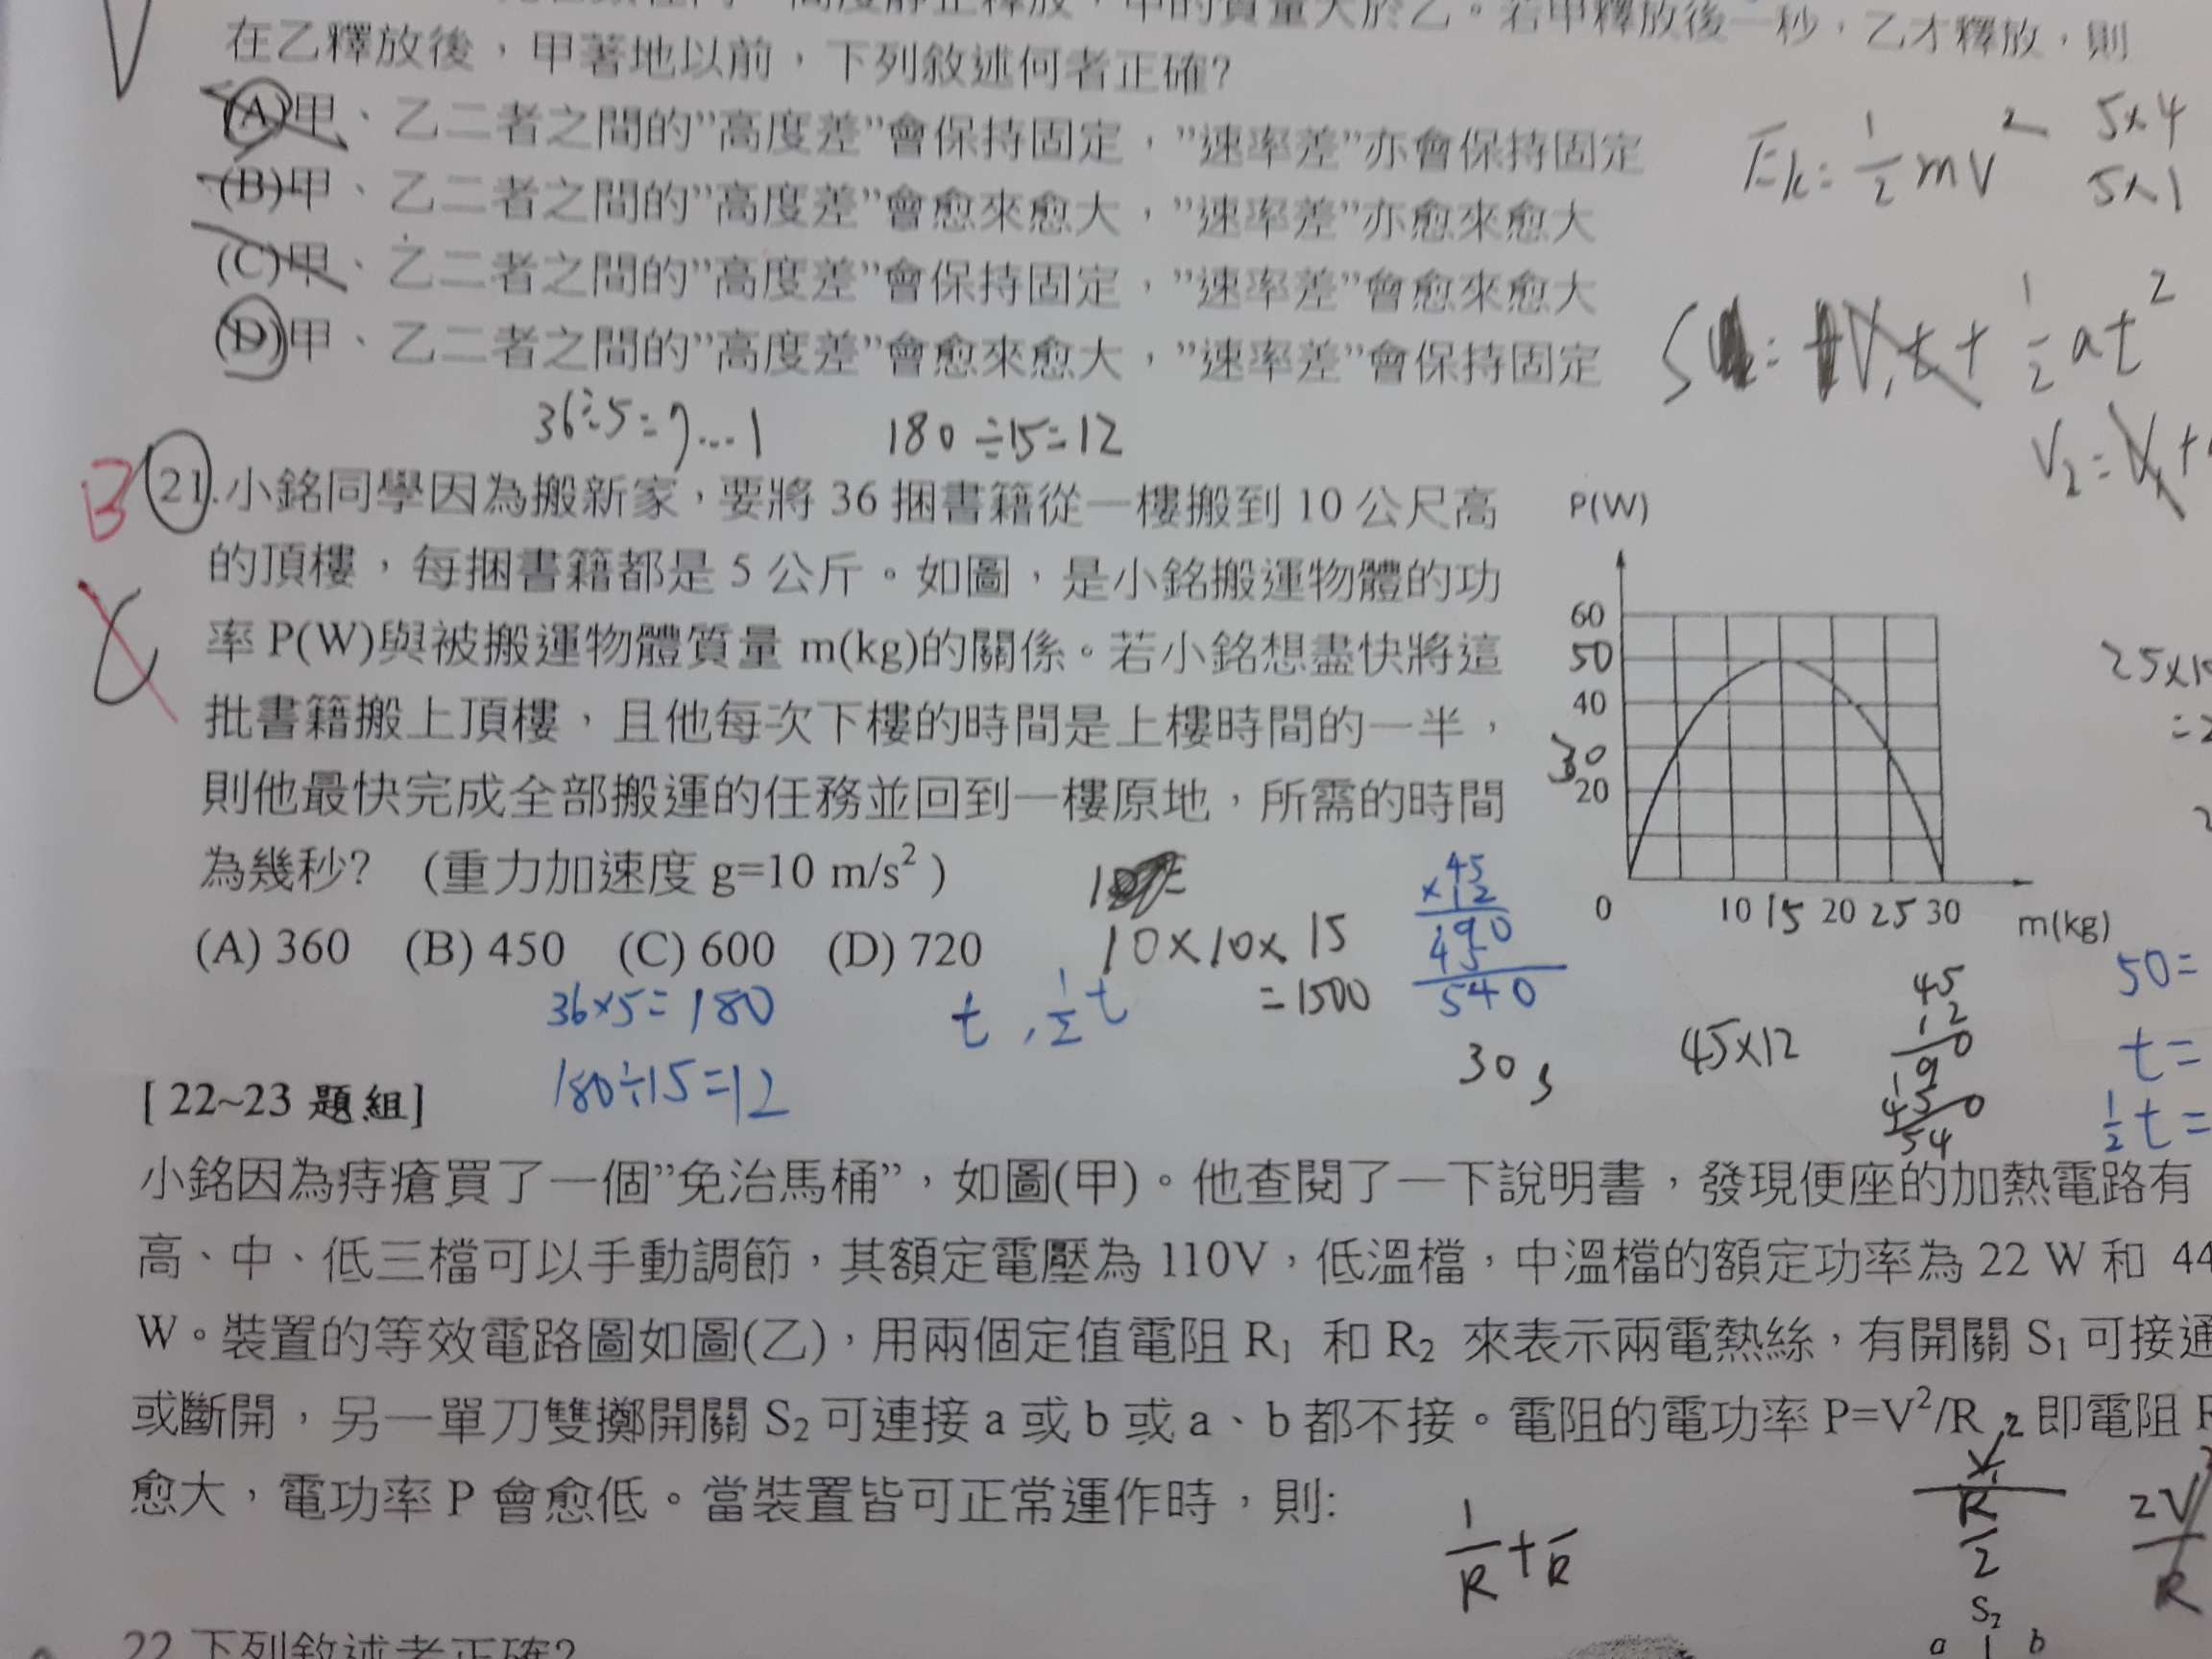 高度靜止釋放,甲的質量大於乙。若甲釋放後一秒,乙才釋放,則
在乙釋放後,甲著地以前,下列敘述何者正確?
(A)甲、乙二者之間的”高度差”會保持固定,”速率差”亦會保持固定
Ek= 1/2 mv²
5×4
5×1
(B)甲、乙二者之間的”高度差”會愈來愈大,”速率差”亦愈來愈大
(C)甲、乙二者之間的”高度差”會保持固定,”速率差”會愈來愈大
(D)甲、乙二者之間的”高度差”會愈來愈大,”速率差”會保持固定
S = V₁t + 1/2 at²
V₂=V₁+
36÷5=7...1 180÷15=12
B
21.小銘同學因為搬新家,要將 36 捆書籍從一樓搬到 10 公尺高
的頂樓,每捆書籍都是 5 公斤。如圖,是小銘搬運物體的功
率 P(W)與被搬運物體質量 m(kg)的關係。若小銘想盡快將這
批書籍搬上頂樓,且他每次下樓的時間是上樓時間的一半,
則他最快完成全部搬運的任務並回到一樓原地,所需的時間
為幾秒? (重力加速度 g=10 m/s² )
(A) 360 (B) 450 (C) 600 (D) 720
P(W)
60
50
40
30
20
0 10 15 20 25 30 m(kg)
10×10×15
=1500
45
×12
90
45
540
36×5=180
180÷15=12
t , 1/2 t
30s
45×12
45
12
90
45
540
50=
t=
1/2 t=
[ 22~23 題組]
小銘因為痔瘡買了一個”免治馬桶”,如圖(甲)。他查閱了一下說明書,發現便座的加熱電路有
高、中、低三檔可以手動調節,其額定電壓為 110V,低溫檔,中溫檔的額定功率為 22 W 和 44
W。裝置的等效電路圖如圖(乙),用兩個定值電阻 R₁ 和 R₂ 來表示兩電熱絲,有開關 S₁ 可接通
或斷開,另一單刀雙擲開關 S₂ 可連接 a 或 b 或 a、b 都不接。電阻的電功率 P=V²/R,即電阻 R
愈大,電功率 P 會愈低。當裝置皆可正常運作時,則:
S₂
a b
22.下列敘述